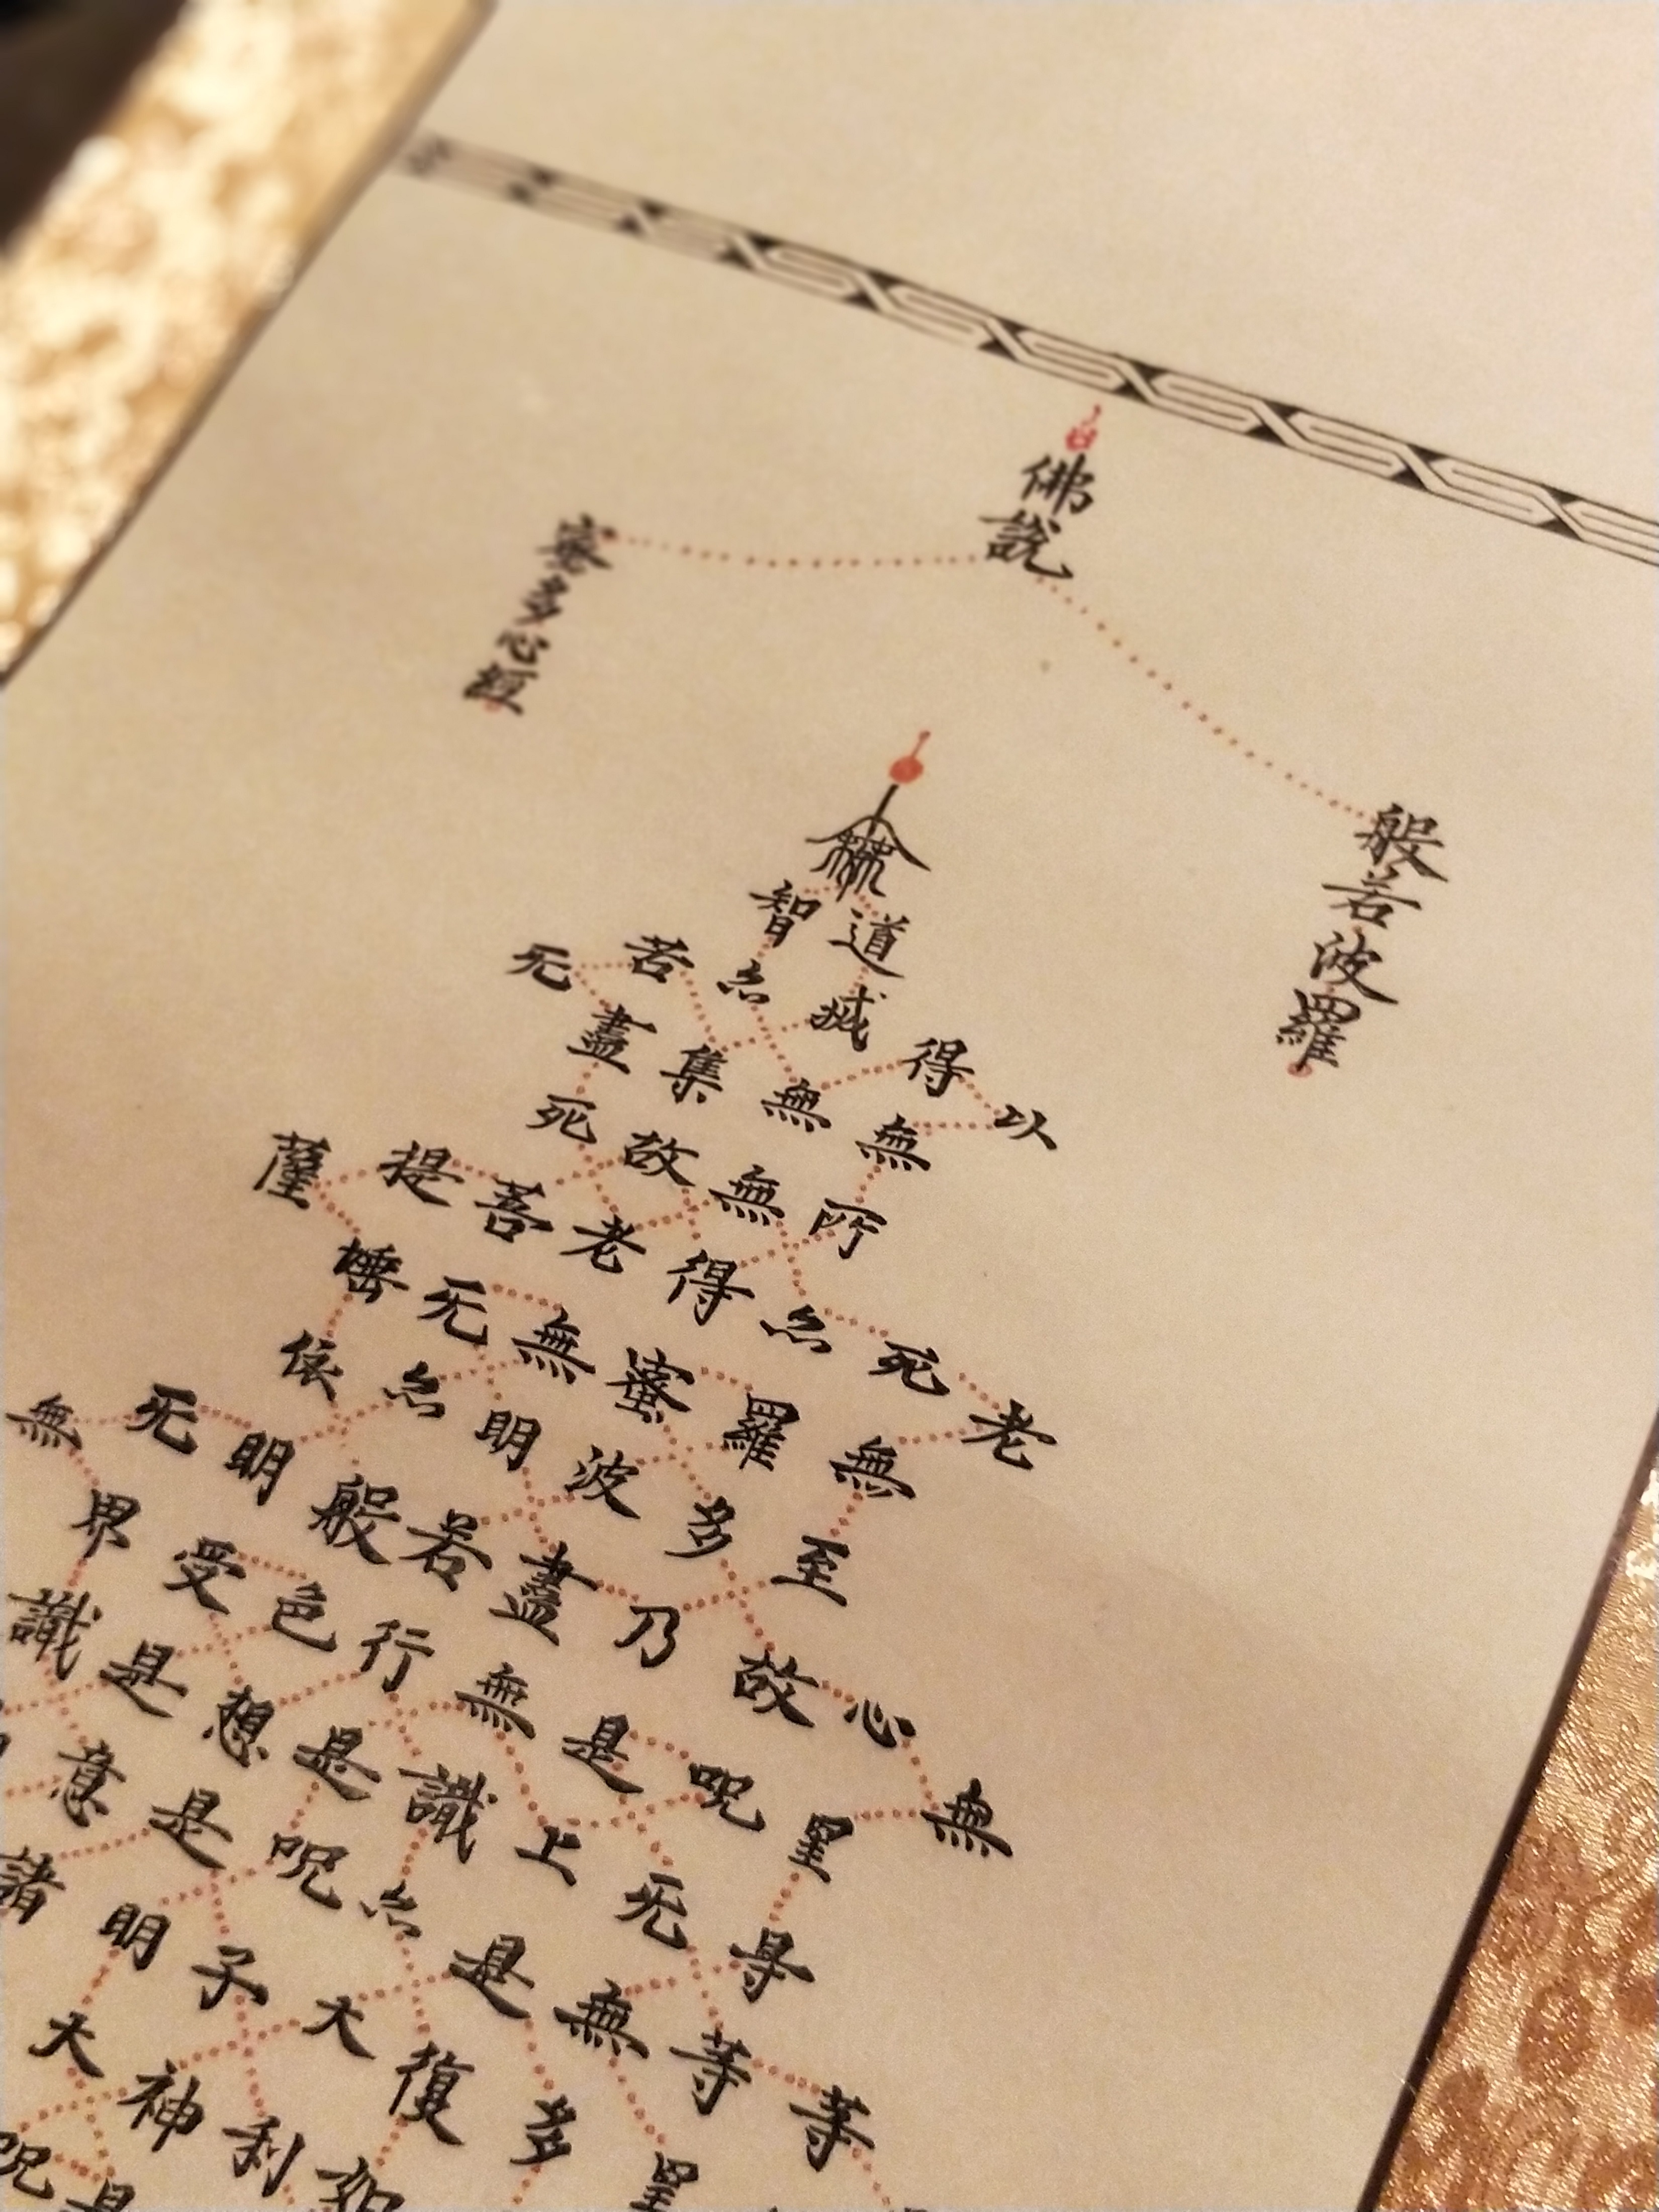 佛說
般若波羅
蜜多心經
無
智道
死若亦滅得以
盡集無無
死故無所
薩提菩老得亦死老
埵无無蜜羅無
依亦明波多至
無无明般若盡乃故心無
界受色行無是呪罣
識是想是識上无㝵
意是呪亦是無等等
諸明子大復多罣
大神利
呪是